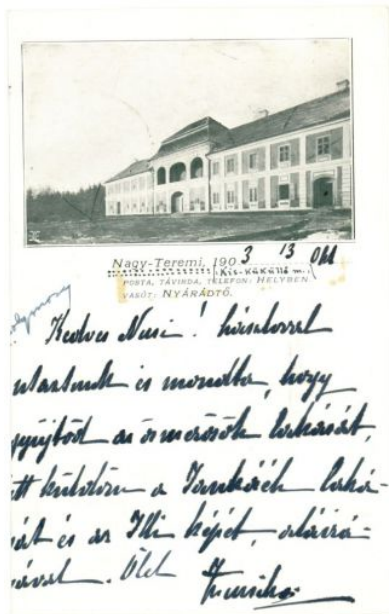 Nagy-Teremi, 190 3 13 Okt
(Kis-Küküllő m.,
POSTA, TÁVIRDA, TELEFON: HELYBEN
VASÚT: NYÁRÁDTŐ.
Kedves Nusi!
és mondta, hogy
gyüjtöd az ösmerősök lakását,
itt küldöm a Jankáék laká-
sát és az Illi képét, aláirá-
sával. Ölel